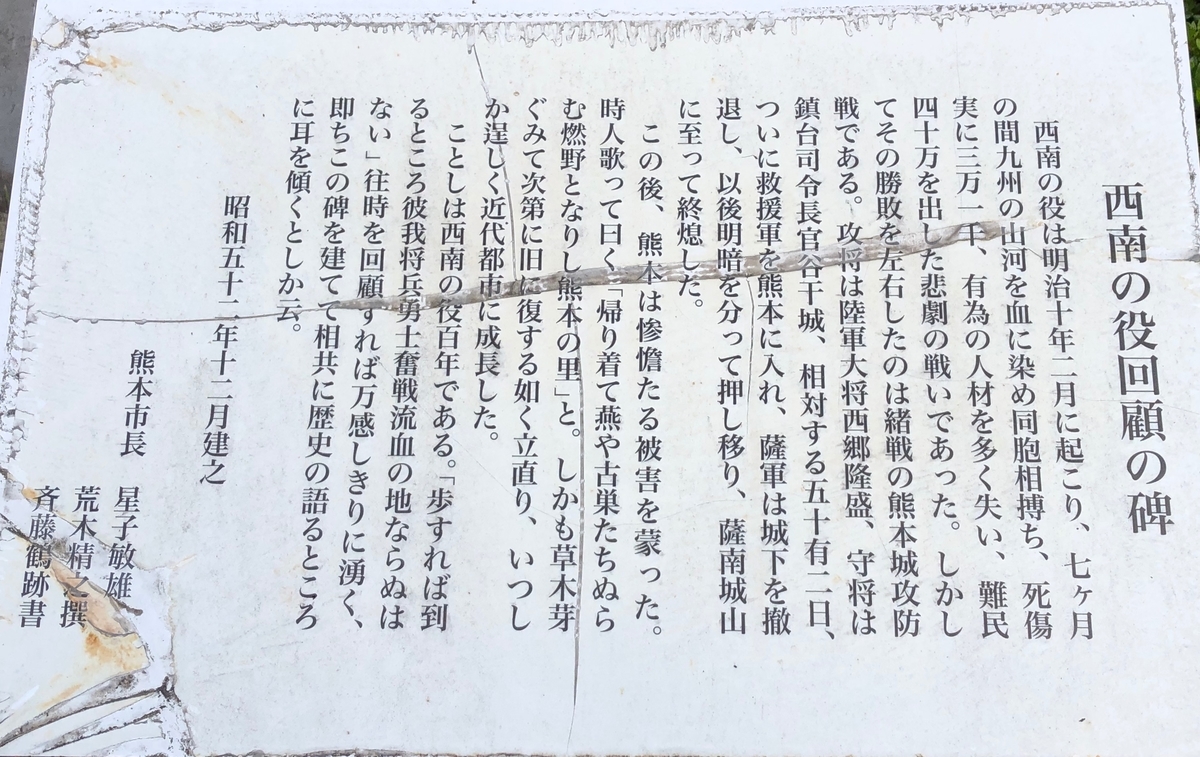 西南の役回顧の碑
西南の役は明治十年二月に起こり、七ヶ月
の間九州の山河を血に染め同胞相搏ち、死傷
実に三万一千、有為の人材を多く失い、難民
四十万を出した悲劇の戦いであった。しかし
てその勝敗を左右したのは緒戦の熊本城攻防
戦である。攻将は陸軍大将西郷隆盛、守将は
鎮台司令長官谷干城、相対する五十有二日、
ついに救援軍を熊本に入れ、薩軍は城下を撤
退し、以後明暗を分って押し移り、薩南城山
に至って終熄した。
この後、熊本は惨憺たる被害を蒙った。
時人歌って曰く「帰り着て燕や古巣たちぬら
む燃野となりし熊本の里」と。しかも草木芽
ぐみて次第に旧に復する如く立直り、いつし
か逞しく近代都市に成長した。
ことしは西南の役百年である。「歩すれば到
るところ彼我将兵勇士奮戦流血の地ならぬは
ない」往時を回顧すれば万感しきりに湧く、
即ちこの碑を建てて相共に歴史の語るところ
に耳を傾くとしか云。
昭和五十二年十二月建之
熊本市長 星子敏雄
荒木精之撰
斉藤鶴跡書